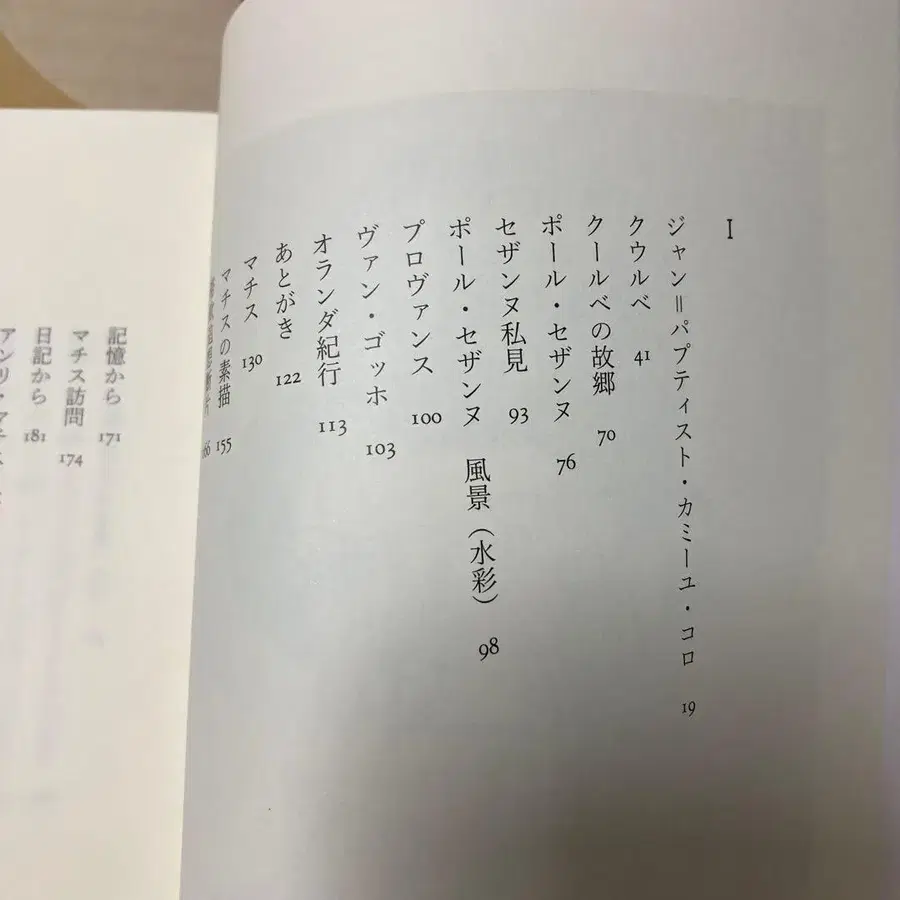 I
ジャン＝パプティスト・カミーユ・コロ 19
クウルベ 41
クールベの故郷 70
ポール・セザンヌ 76
セザンヌ私見 93
ポール・セザンヌ 風景（水彩） 98
プロヴァンス 100
ヴァン・ゴッホ 103
オランダ紀行 113
あとがき 122
マチス 130
マチスの素描 155
記憶から 171
マチス訪問 174
日記から 181
アンリ・マチス